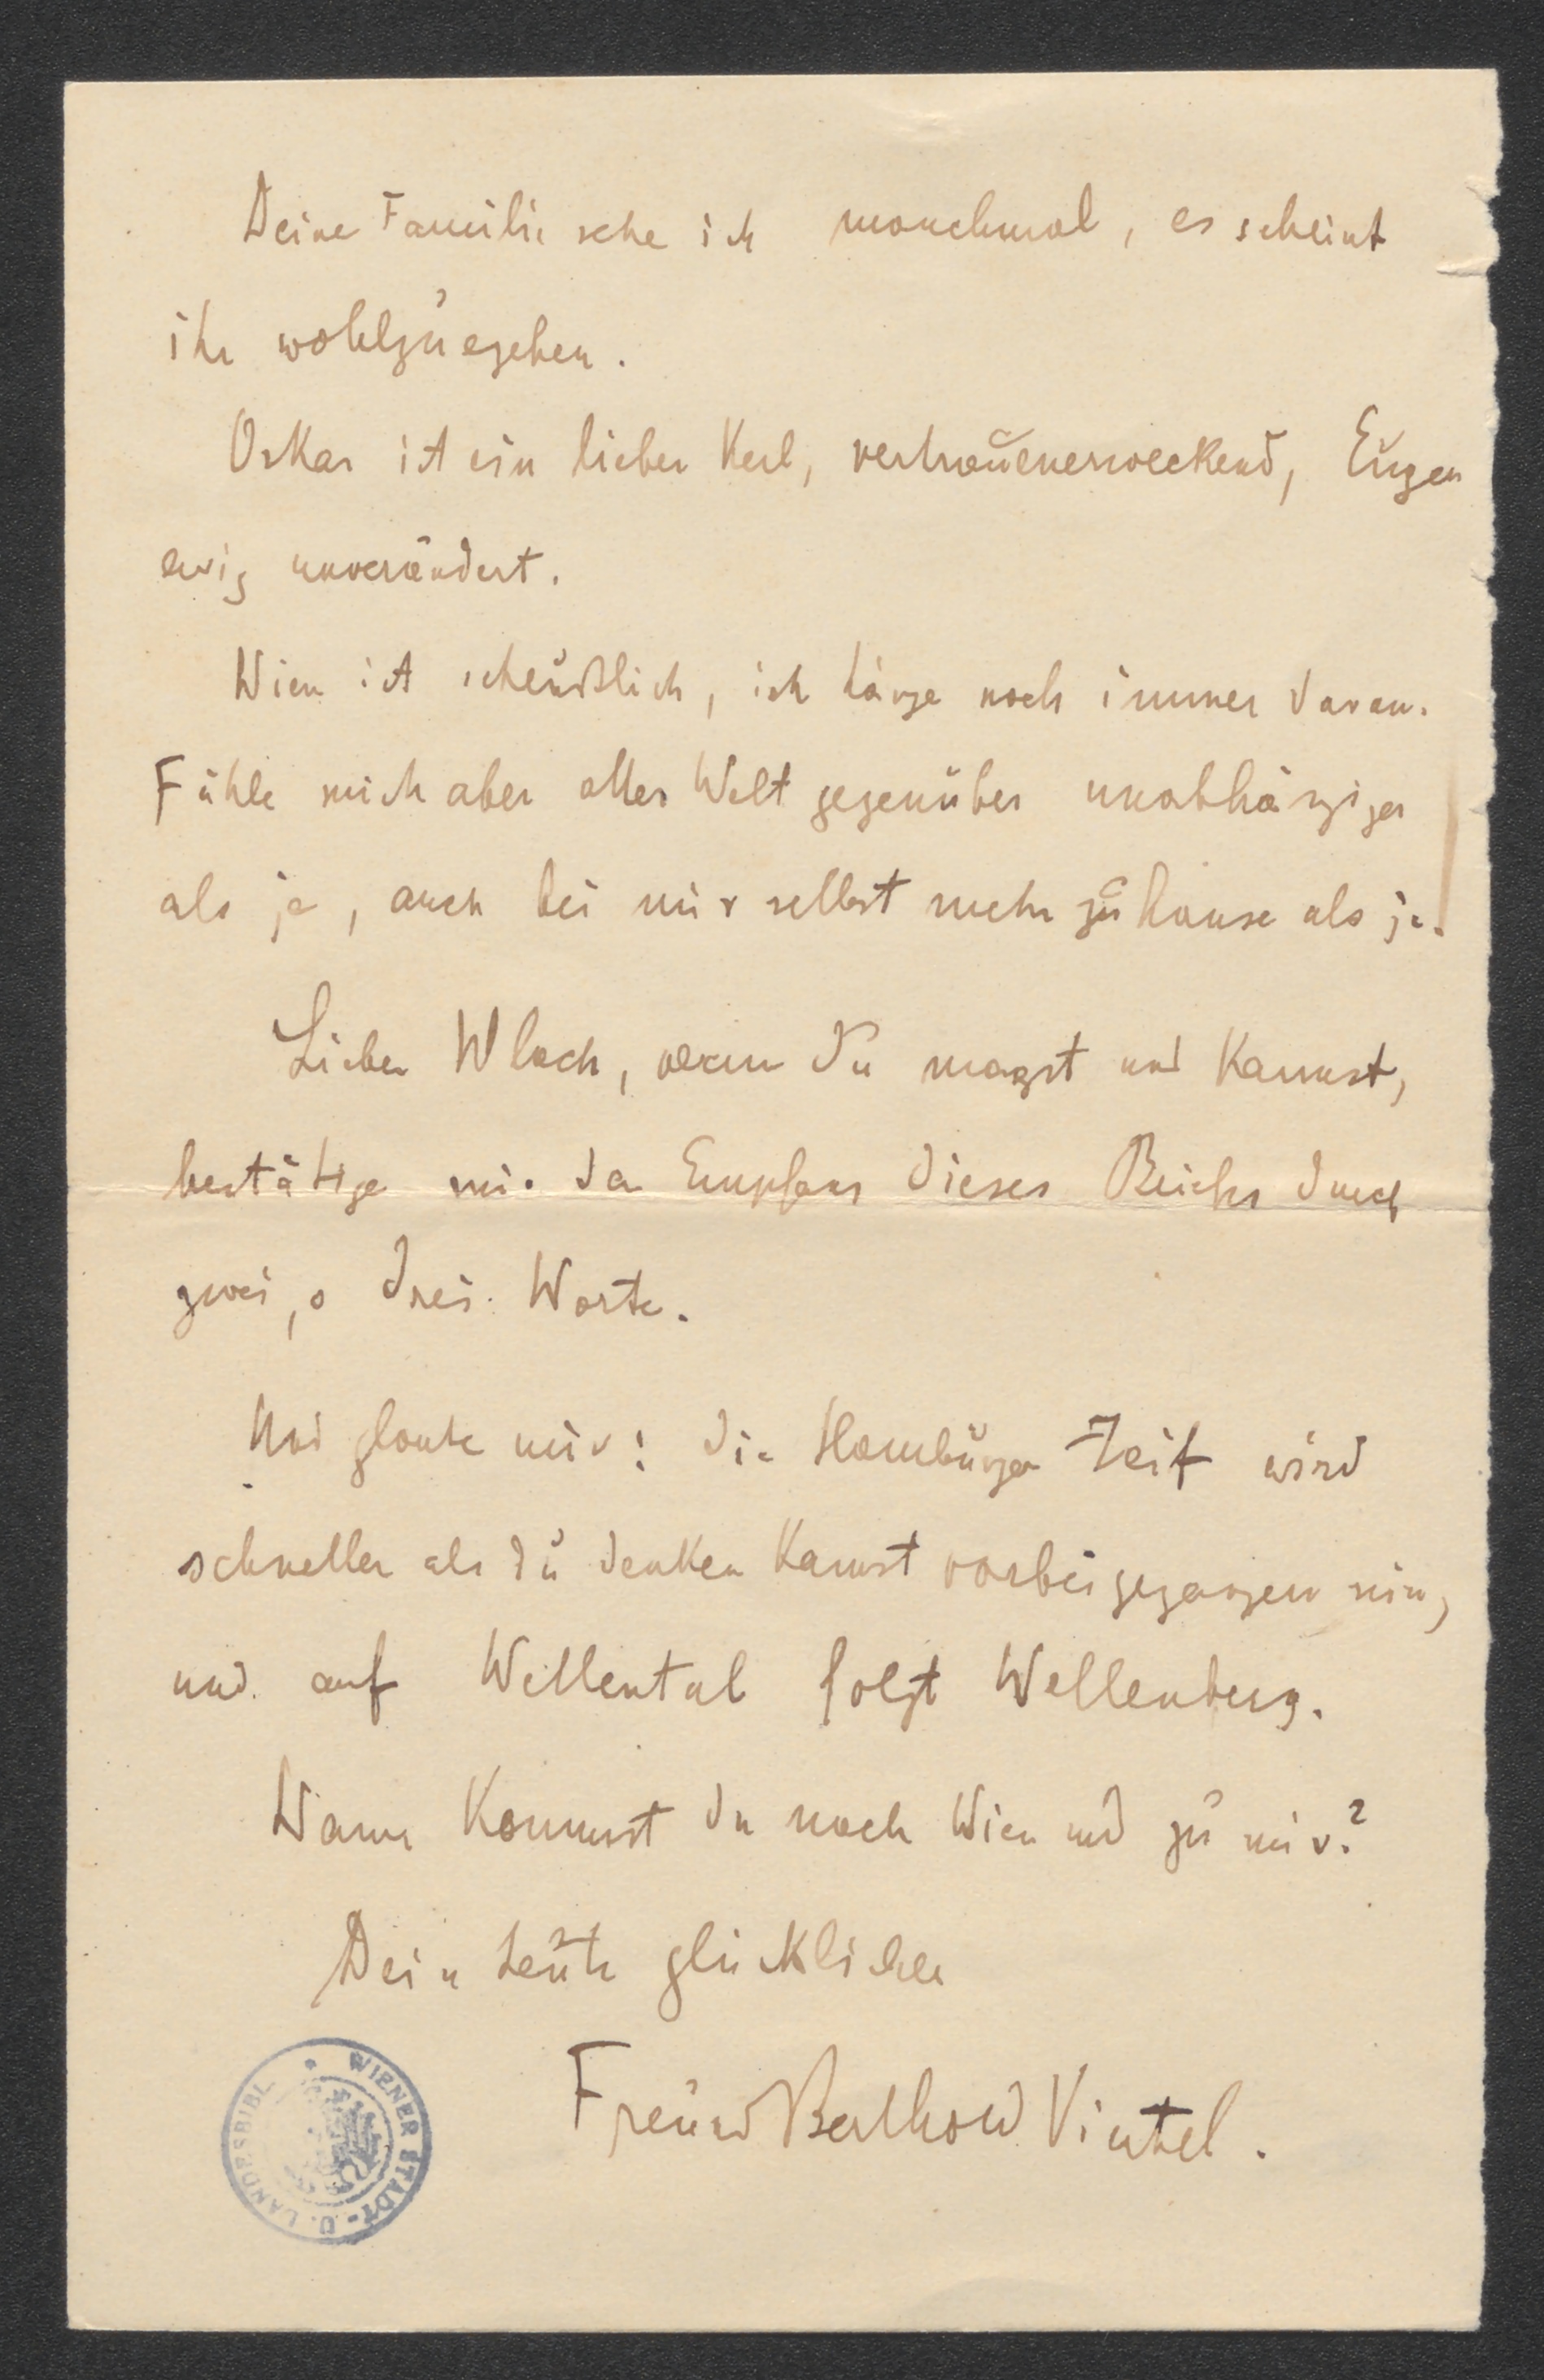 Deine Familie sehe ich manchmal, es scheint
ihr wohlzuegehen.
Oskar ist ein lieber Kerl, vertrauenerweckend, Eugen
ewig unverändert.
Wien ist scheußlich, ich hänge noch immer daran.
Fühle mich aber aller Welt gegenüber unabhängiger
als je, auch bei mir selbst mehr zu hause als je.
Lieber Wlach, wenn Du magst und kannst,
bestätige mir den Empfang dieses Briefes durch
zwei, o drei Worte.
Und glaube mir: die Hamburger Zeit wird
schneller als du denken kannst vorbeigegangen sein,
und auf Wellental folgt Wellenberg.
Wann kommst du nach Wien und zu mir?
Dein heute glücklicher
Freund Berthold Viertel.
WIENER STADT- U. LANDESBIBL.